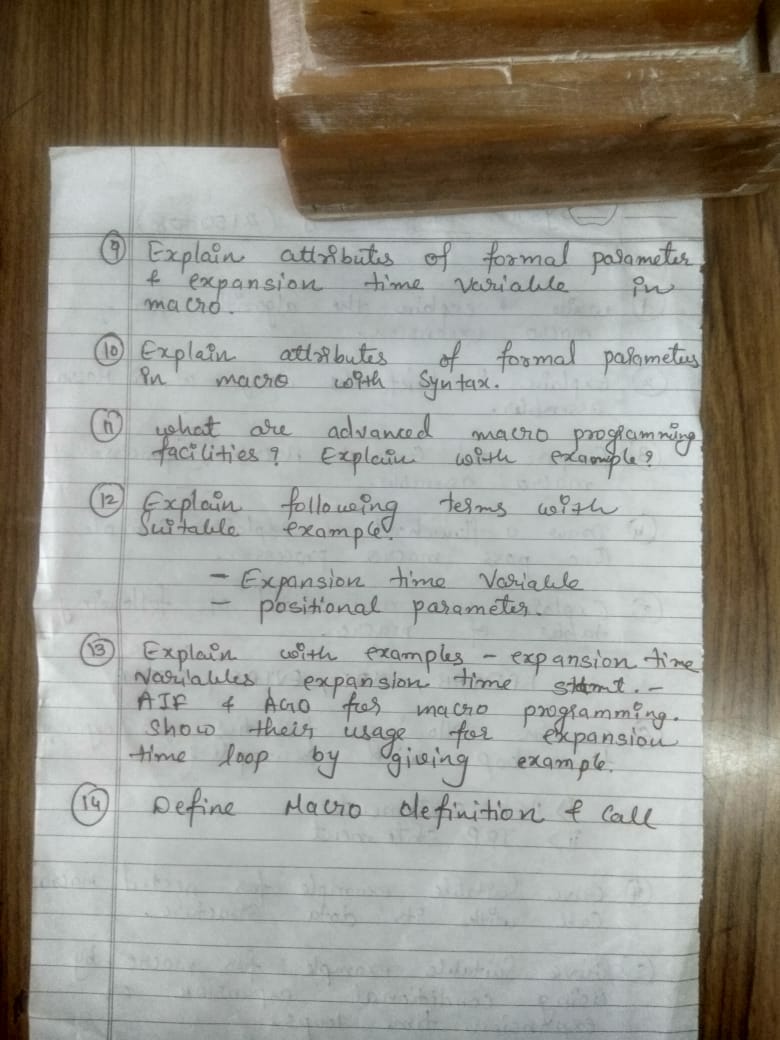 9 Explain attributes of formal parameter
& expansion time variable in
macro.
10 Explain attributes of formal parameters
in macro with Syntax.
11 what are advanced macro programming
facilities? Explain with example?
12 Explain following terms with
Suitable example.
- Expansion time Variable
- positional parameter.
13 Explain with examples - expansion time
Variables expansion time stmt. -
AIF & AGO for macro programming.
Show their usage for expansion
time loop by giving example.
14 Define Macro definition & Call